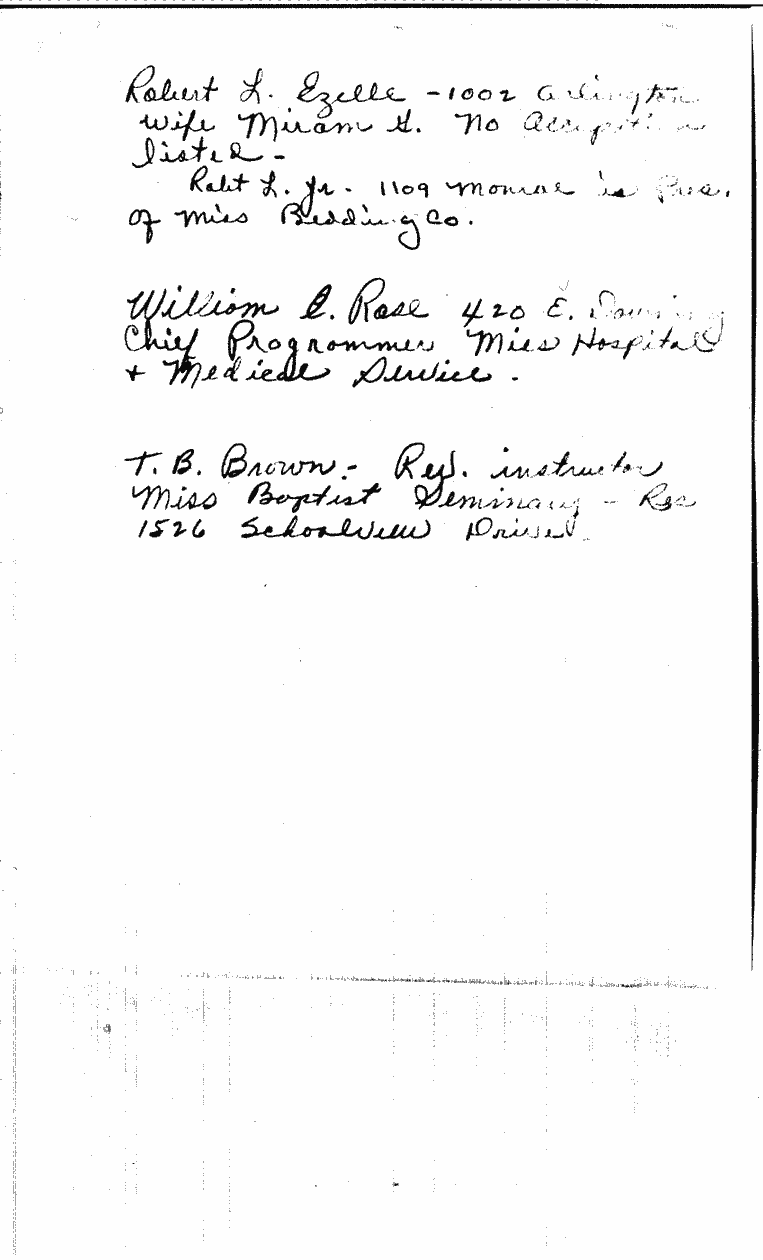 Robert L. Ezelle - 1002 Arlington
Wife Miriam H. No Occupation
listed -
Robt L. Jr. - 1109 Monroe is Pres.
of Miss Bedding Co.
William C. Rose 420 E.
Chief Programmer Miss Hospital
+ Medical Service .
T. B. Brown - Rev. instructor
Miss Baptist Seminary - Res
1526 Schoolview Drive